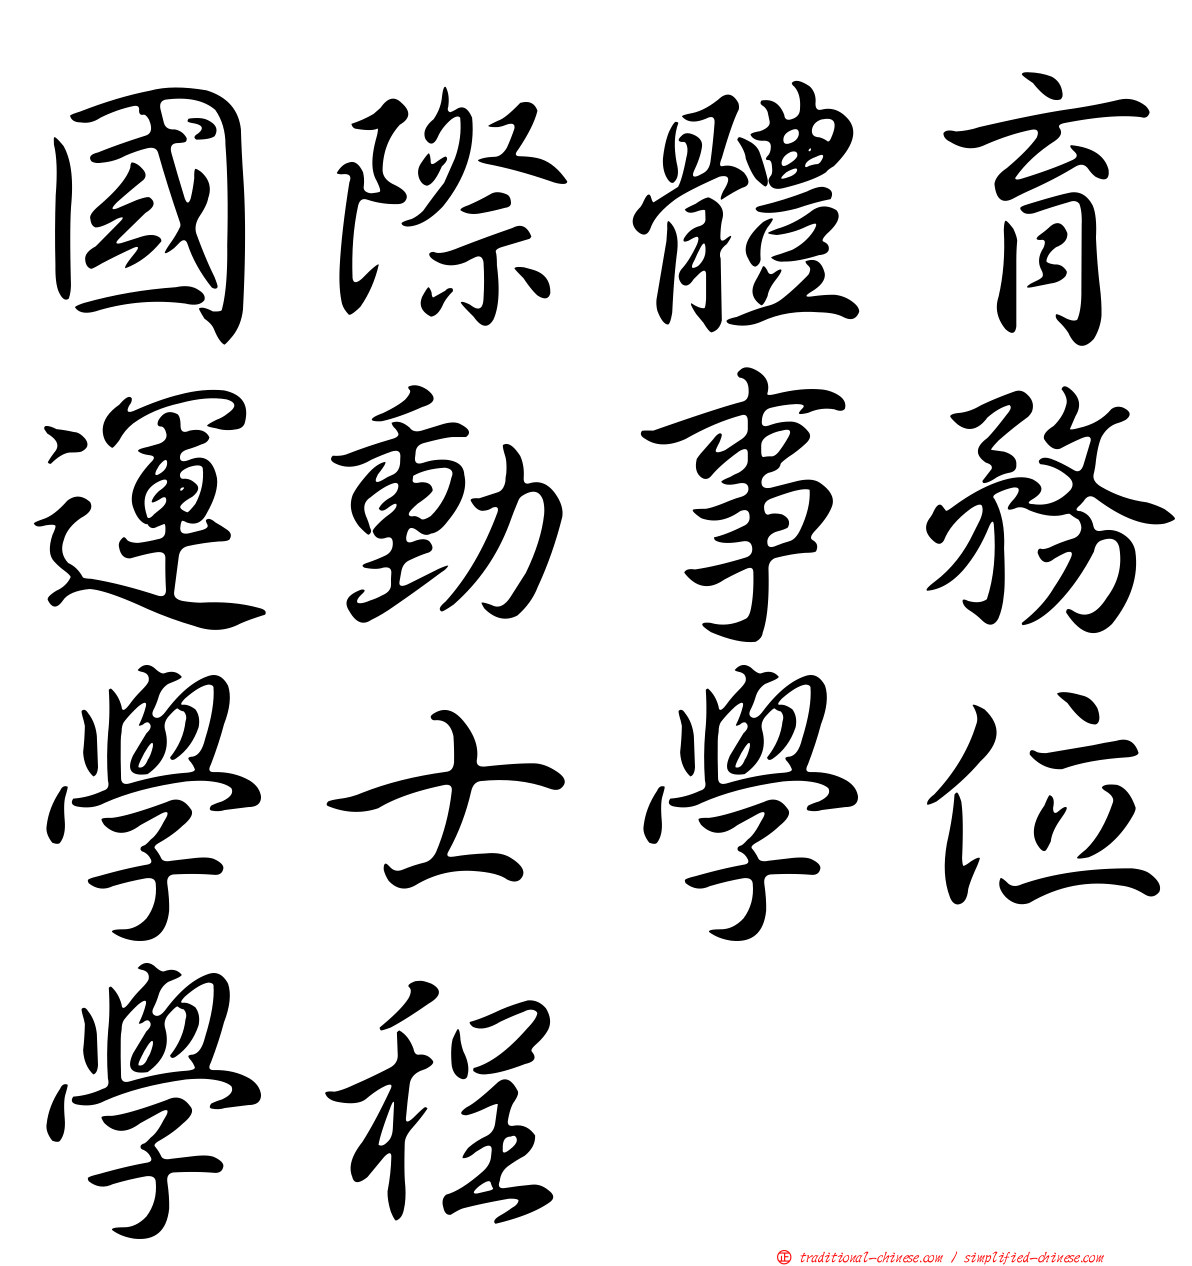 國際體育
運動事務
學士學位
學程
㊣ traditional-chinese.com / simplified-chinese.com